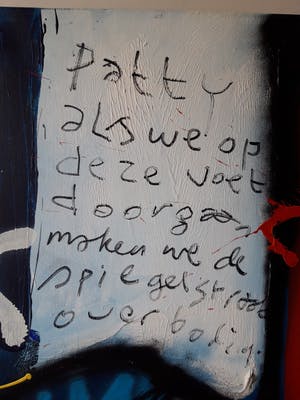 patty
als we op
deze voet
doorgaan,
maken we de
spiegelstraat
overbodig.